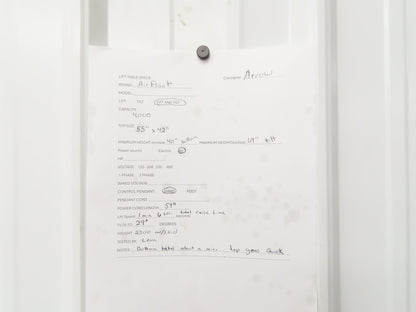 LIFT TABLE SPECS Consignor Arrow
BRAND: Air Float
MODEL:
LIFT TILT LIFT AND TILT
CAPACITY: 4000
TOP SIZE: 55" x 42"
MINIMUM HEIGHT 40" bottom MAXIMUM HEIGHT 69" tilt
Power source Electric Air
HP
VOLTAGE 120 208 230 460
1 PHASE 3 PHASE
WIRED VOLTAGE
CONTROL PENDANT FOOT
PENDANT CORD
POWER CORD LENGTH 59"
Lift Speed 1 min 6 sec total raise time
TILTS TO 29° DEGREES
WEIGHT 2300
TESTED BY: Leon
NOTES: Bottom total about a min. top goes quick